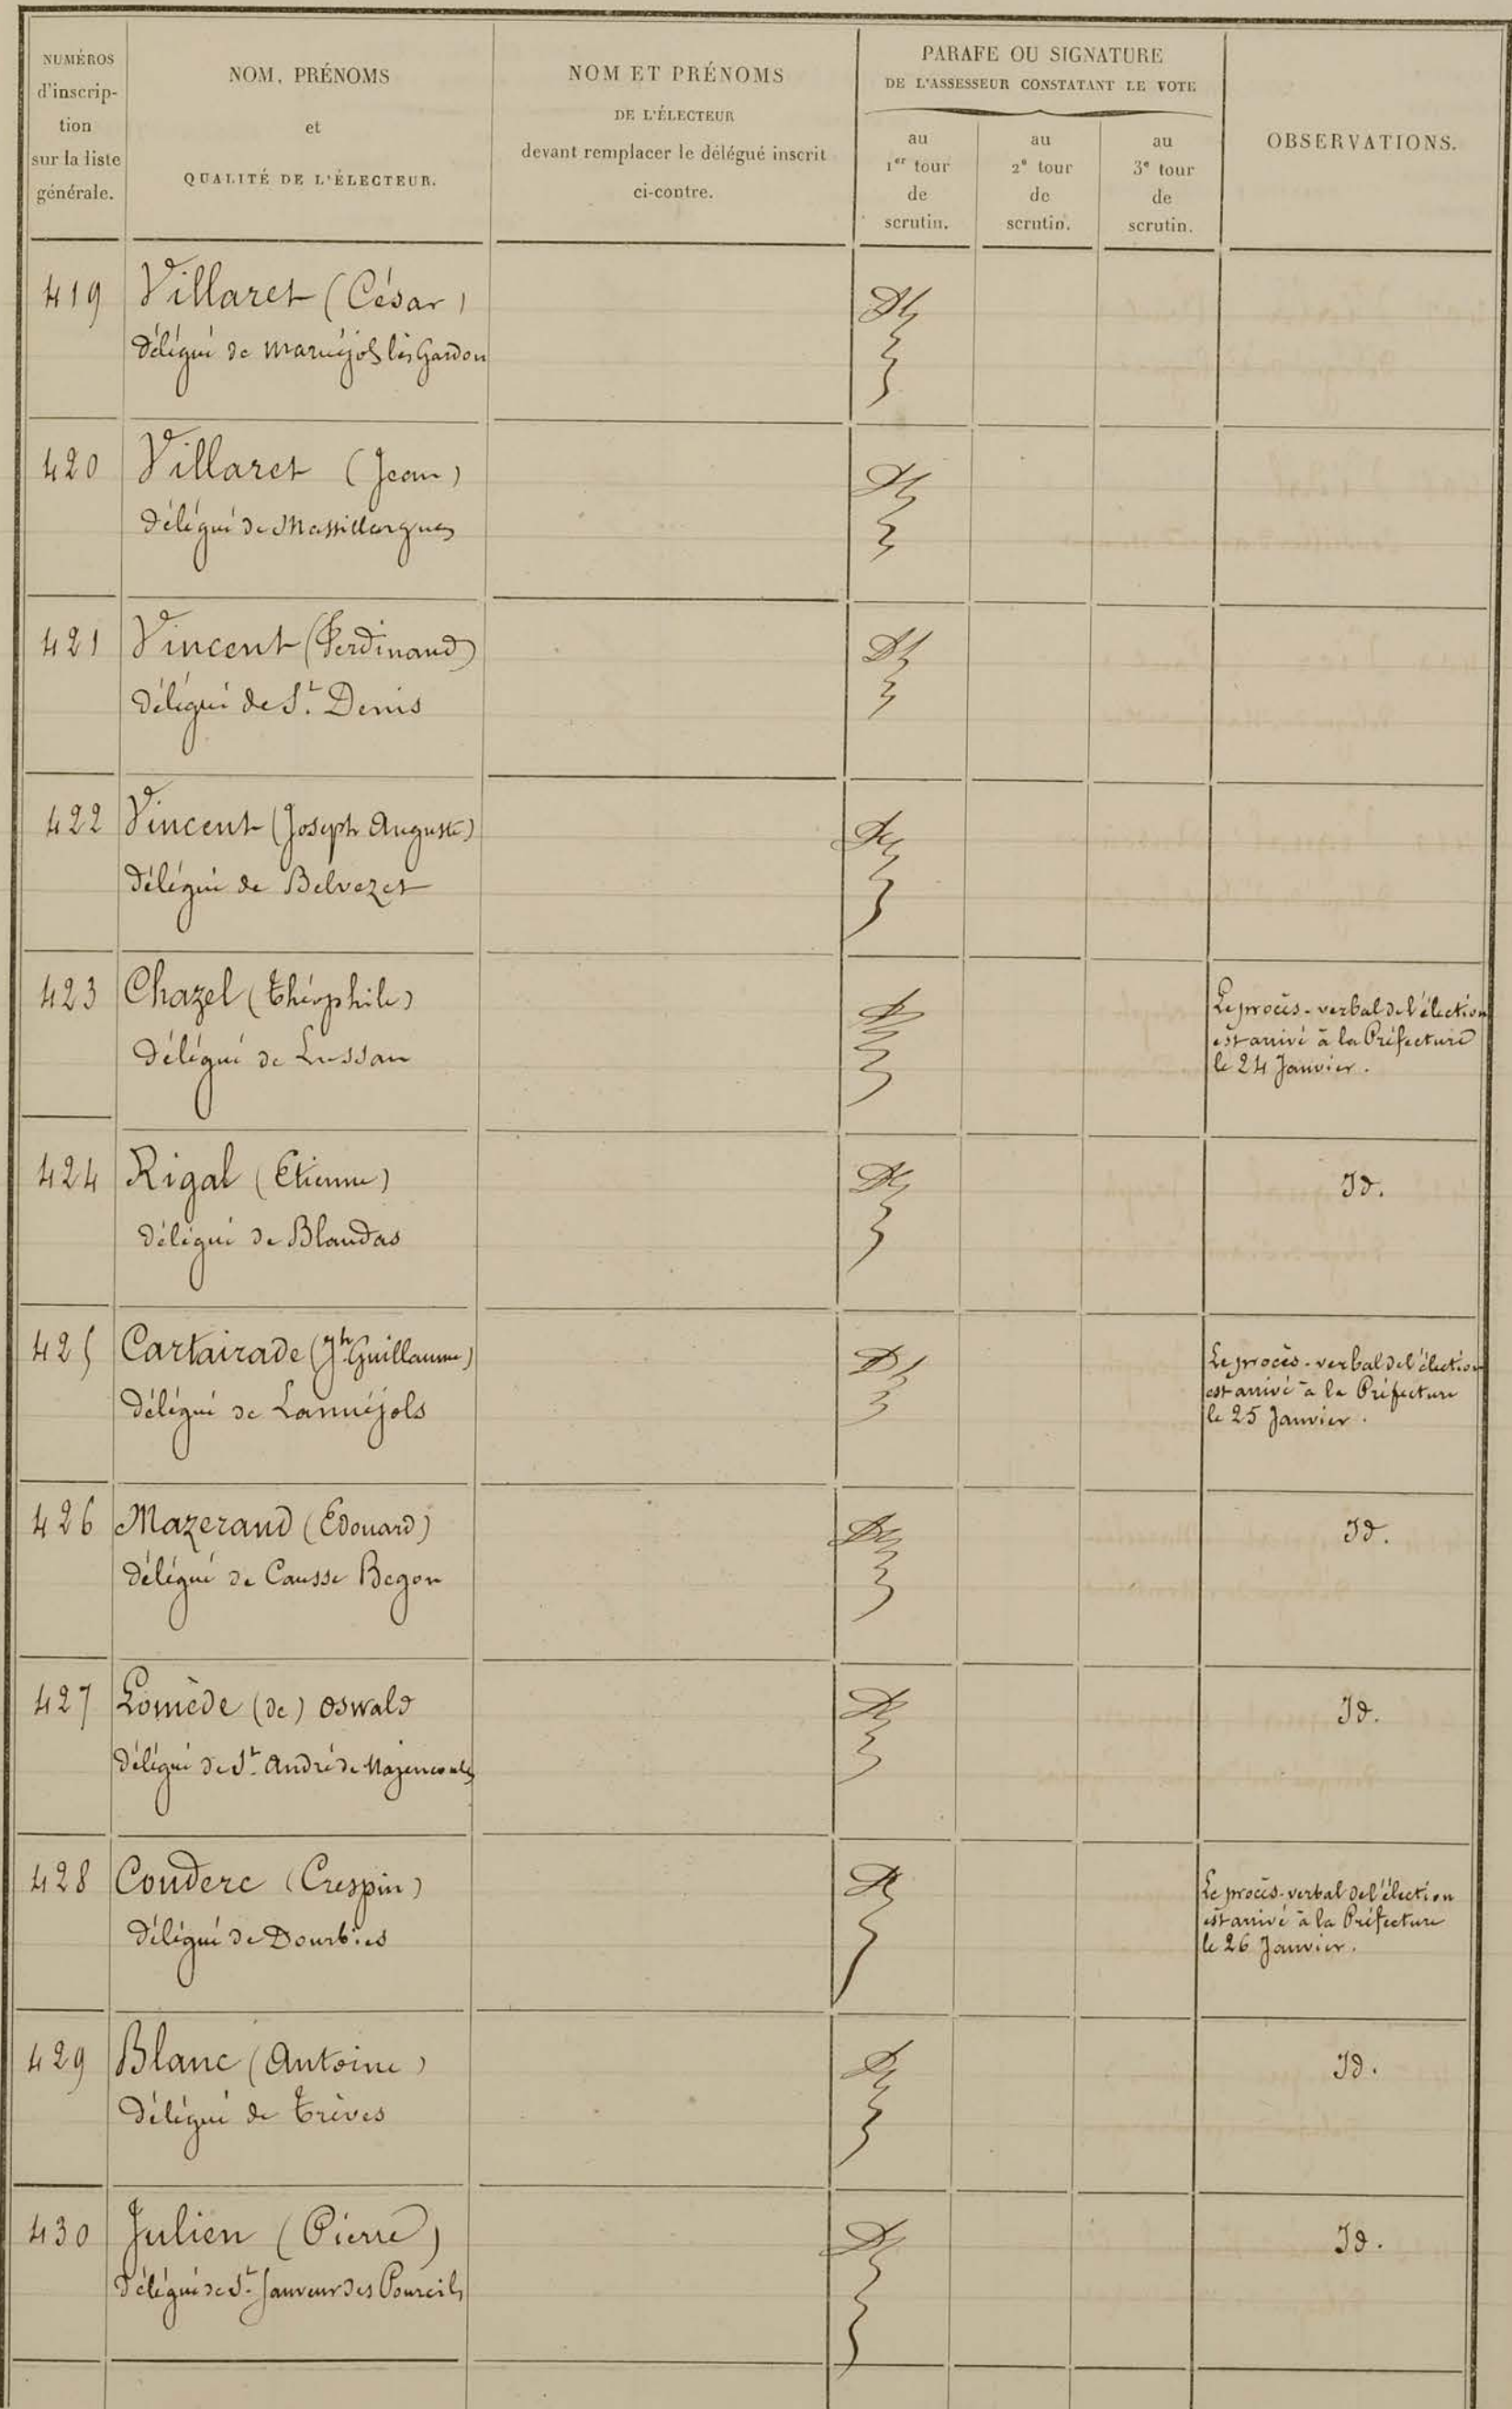 NUMÉROS
d'inscrip-
tion
sur la liste
générale.
NOM, PRÉNOMS
et
QUALITÉ DE L'ÉLECTEUR.
NOM ET PRÉNOMS
DE L'ÉLECTEUR
devant remplacer le délégué inscrit
ci-contre.
PARAFE OU SIGNATURE
DE L'ASSESSEUR CONSTATANT LE VOTE
au
1er tour
de
scrutin.
au
2e tour
de
scrutin.
au
3e tour
de
scrutin.
OBSERVATIONS.
419 Villaret (César)
délégué de Maruéjols lès Gardon
420 Villaret (Jean)
délégué de Massillargues
421 Vincent (Ferdinand)
délégué de St. Denis
422 Vincent (Joseph Auguste)
délégué de Belvezet
423 Chazel (Théophile)
délégué de Lussan
Le procès-verbal de l'élection
est arrivé à la Préfecture
le 24 Janvier.
424 Rigal (Etienne) Id.
délégué de Blandas
425 Cartairade (Jh Guillaume)
délégué de Lanuéjols
Le procès-verbal de l'élection
est arrivé à la Préfecture
le 25 Janvier.
426 Mazerand (Edouard) Id.
délégué de Causse Begon
427 Lomède (de) Oswald Id.
délégué de St. André de Majencoules
428 Couderc (Crespin)
délégué de Dourbies
Le procès-verbal de l'élection
est arrivé à la Préfecture
le 26 Janvier.
429 Blanc (Antoine) Id.
délégué de Trèves
430 Julien (Pierre) Id.
délégué de St. Sauveur des Pourcils